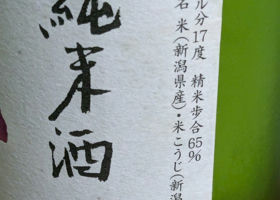 ル分17度 精米歩合65%
名 米(新潟県産)・米こうじ(新潟
純米酒